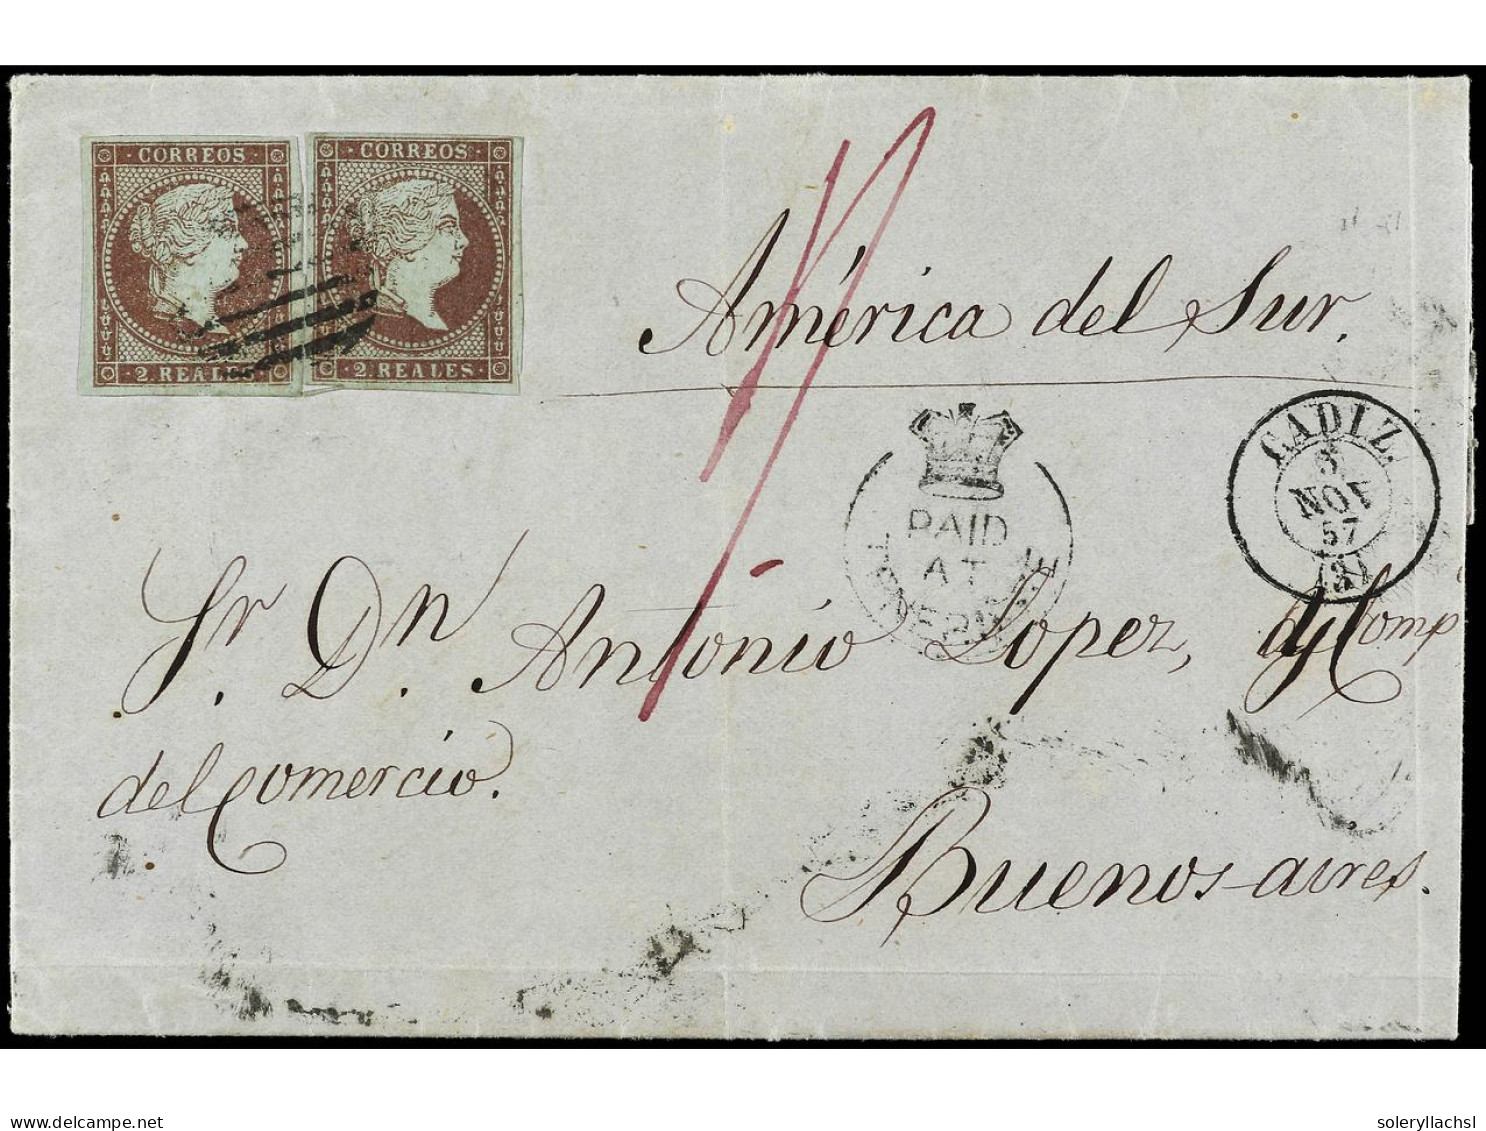 CORREOS
2 REALES
CORREOS
2 REALES
América del Sur.
CADIZ.
3
NOV
57
(3)
PAID
AT
Sr. Dn. Antonio Lopez, y Comp
del Comercio.
Buenos-aires.
delcampe.net
soleryllachsl